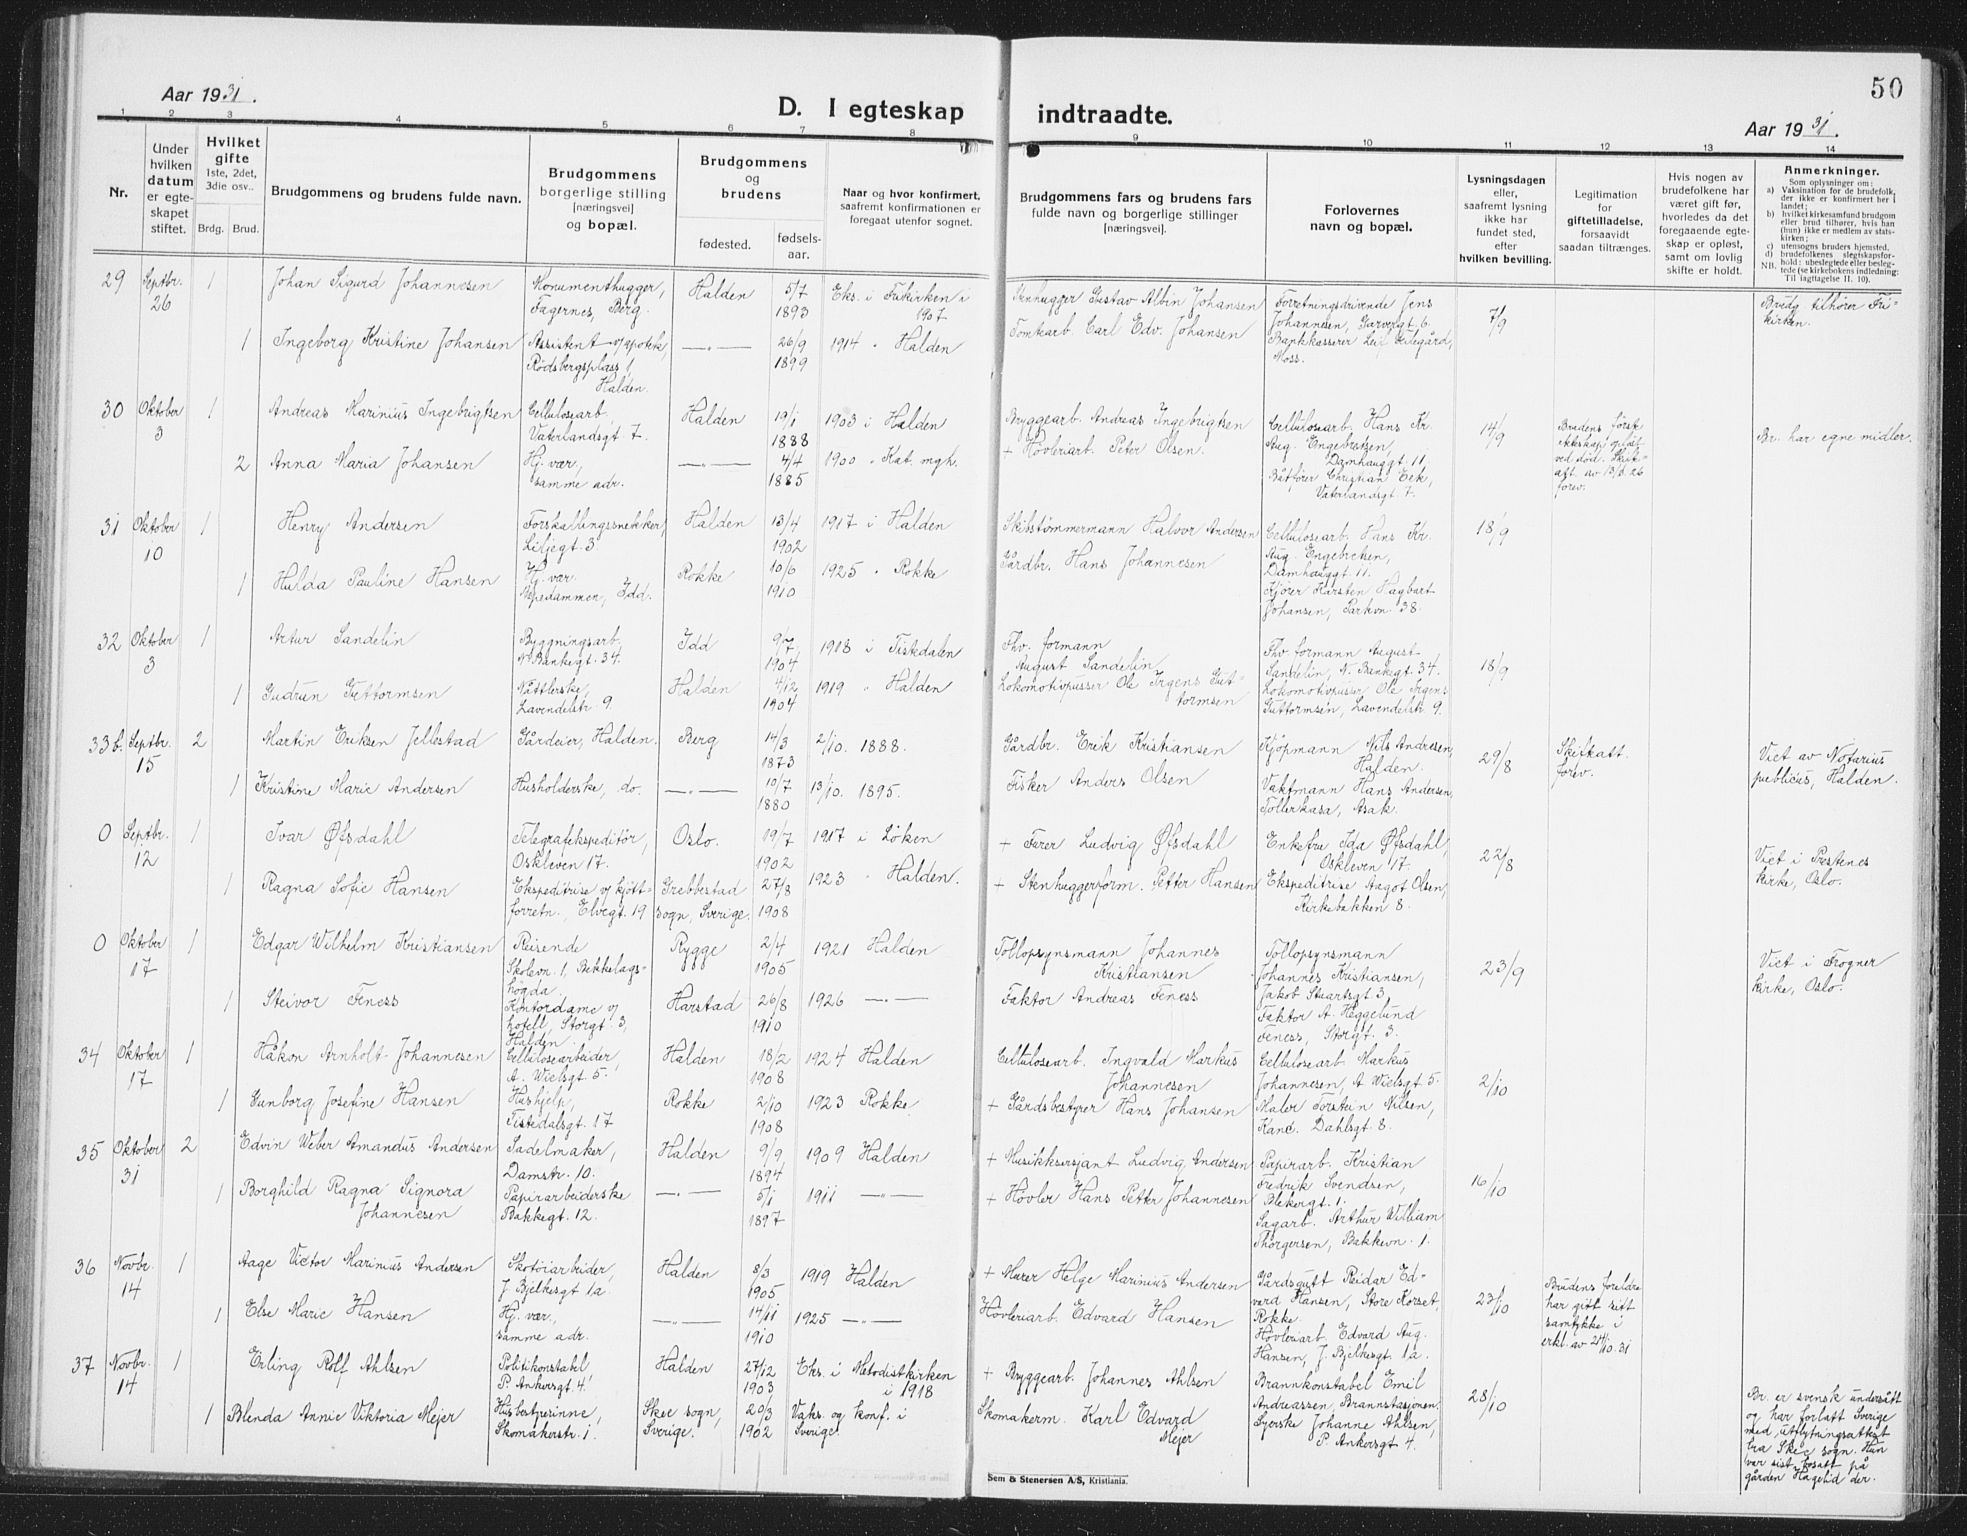 50
Aar 1931.
D. I egteskap indtraadte.
Aar 1931.
1 2 3 4 5 6 7 8 9 10 11 12 13 14
Nr.
Under hvilken datum er egteskapet stiftet.
Hvilket gifte 1ste, 2det, 3die osv..
Brdg. Brud.
Brudgommens og brudens fulde navn.
Brudgommens borgerlige stilling [næringsvei] og bopæl.
Brudgommens og brudens
fødested.
fødsels-aar.
Naar og hvor konfirmert, saafremt konfirmationen er foregaat utenfor sognet.
Brudgommens fars og brudens fars fulde navn og borgerlige stillinger [næringsvei].
Forlovernes navn og bopæl.
Lysningsdagen eller, saafremt lysning ikke har fundet sted, efter hvilken bevilling.
Legitimation for giftetilladelse, forsaavidt saadan tiltrænges.
Hvis nogen av brudefolkene har været gift før, hvorledes da det foregaaende egteskap er opløst, samt om lovlig skifte er holdt.
Anmerkninger.
Som oplysninger om:
a) Vaksination for de brudefolk, der ikke er konfirmert her i landet;
b) hvilket kirkesamfund brudgom eller brud tilhører, hvis han (hun) ikke er medlem av statskirken;
c) utensogns bruders hjemsted.
d) brudefolkenes slegtskapsforhold: ubeslegtede eller beslegtede (se kirkebokens indledning: NB. Til iagttagelse II. 10).
29 Septbr. 26 1 Johan Sigurd Johannesen Monumenthugger, Fagernes, Berg. Halden 5/7 1893 Eks. i Frikirken i 1907 Stenhugger Gustav Albin Johansen Forretningsdrivende Jens Johannesen, Garvergt. 6. 7/9 Brudg tilhører Frikirken.
1 Ingeborg Kristine Johansen Assistent v/ apotek, Rødsbergsplass 1, Halden. —"— 26/9 1899 1914 " Halden Tomtearb. Carl Edv. Johansen Bankkasserer Leif Filegård, Moss.
30 Oktober 3 1 Andreas Marinius Ingebrigtsen Cellulosearb. Vaterlandsgt 7. Halden 19/1 1888 1903 i Halden Bryggearb. Andreas Ingebrigtsen Cellulosearb. Hans Kr. Aug. Engebretsen, Damhauggt. 11, 14/9 Brudens først ekteskap opløst ved død. Skifteatt. av 13/8 26 forev. Br. har egne midler.
2 Anna Maria Johansen Hj. vær, samme adr. —"— 4/4 1885 1900 " Kat. mgh. + Høvleriarb. Peter Olsen. Båtfører Christian Eek, Vaterlandsgt 7.
31 Oktober 10 1 Henry Andersen Forskallingssnekker, Liljegt. 3 Halden 13/4 1902 1917 i Halden Skibstømmermann Halvor Andersen Cellulosearb. Hans Kr. Aug. Engebretsen, Damhauggt. 11. 18/9
1 Hulda Pauline Hansen Hj. vær. Vepedammen, Idd. Rokke 10/6 1910 1925 " Rokke Gårdbr. Hans Johannesen Kjører Karsten Hagbart Johansen, Parkvn. 38.
32 Oktober 3 1 Artur Sandelin Byggningsarb. N. Bankegt. 34. Idd 9/7 1904 1918 i Tistedalen Fhv. formann August Sandelin Fhv. formann August Sandelin, N. Bankegt. 34. 18/9
1 Gudrun Guttormsen Nåtlerske, Lavendelstr. 9 Halden 4/12 1904 1919 " Halden Lokomotivpusser Ole Irgens Guttormsen Lokomotivpusser Ole Irgens Guttormsen, Lavendelstr. 9.
33 b. Septbr. 15 2 Martin Eriksen Jellestad Gårdeier, Halden. Berg 14/3 1873 2/10. 1888. Gårdbr. Erik Kristiansen Kjøpmann Nils Andresen, Halden. 29/8 Skifteatt. forev. Viet av Notarius publicus, Halden.
1 Kristine Marie Andersen Husholderske, do. —"— 10/7 1880 13/10. 1895. Fisker Anders Olsen Vaktmann Hans Andersen, Tollerkasa, Asak.
0 Septbr. 12 1 Ivar Øfsdahl Telegrafekspeditör, Oskleven 17. Oslo. 19/7 1902 1917 i Løken + Fører Ludvig Øfsdahl Enkefru Ida Øfsdahl, Oskleven 17. 22/8 Viet i Prestenes kirke, Oslo.
1 Ragna Sofie Hansen Ekspeditrise v/ kjøttforretn., Elvegt. 19 Grebbestad sogn, Sverige. 27/8 1908 1923 " Halden. + Stenhuggerform. Petter Hansen Ekspeditrise Aagot Olsen, Kirkebakken 8.
0 Oktober 17 1 Edgar Wilhelm Kristiansen Reisende Skolevn. 1, Bekkelagshøgda. Rygge 2/4 1905 1921 Halden Tollopsynsmann Johannes Kristiansen Tollopsynsmann Johannes Kristiansen, Jakob Stuartsgt. 3, 23/9 Viet i Frogner kirke, Oslo.
1 Steivor Feness Kontordame v/ hotell, Storgt. 3, Halden. Harstad 26/8 1910 1926 —"— Faktor Andreas Feness Faktor A. Heggelund Feness, Storgt. 3.
34 Oktober 17 1 Håkon Arnholt Johannesen Cellulosearbeider, A. Wielsgt 5. Halden 18/2 1908 1924 Halden Cellulosearb. Ingvald Markus Johannesen Cellulosearb Markus Johannesen, A Wielsgt 5. 2/10
1 Gunborg Josefine Hansen Hushjelp, Tistedalsgt. 17 Rokke 2/10 1908 1923 Rokke + Gårdsbestyrer Hans Johansen Maler Torstein Nilsen, Kanc. Dahlsgt 8.
35 Oktober 31 2 Edvin Weber Amandus Andersen Sadelmaker, Damstr. 10. Halden 9/9 1894 1909 Halden + Musikksersjant Ludvig Andersen Papirarb. Kristian Fredrik Svendsen, Blekergt. 1. 16/10
1 Borghild Ragna Signora Johannesen Papirarbeiderske Bakkegt. 12. —"— 5/1 1897 1911 —"— + Høvler Hans Petter Johannesen Sagarb. Arthur William Thorgersen, Bakkevn. 1.
36 Novbr. 14 1 Aage Victor Marinius Andersen Skotøiarbeider, J. Bjelkesgt 1a. Halden 8/3 1905 1919 Halden + Murer Helge Marinius Andersen Gårdsgutt Reidar Edvard Hansen, Store Korset, Rokke. 23/10 Brudens foreldre har gitt sitt samtykke i erkl. av 24/10. 31
1 Else Marie Hansen Hj. vær., samme adr. —"— 14/11 1910 1925 —"— Høvleriarb. Edvard Hansen Høvleriarb. Edvard Aug. Hansen, J. Bjelkesgt. 1a.
37 Novbr. 14 1 Erling Rolf Ahlsen Politikonstabel P. Ankersgt. 4. Halden 27/12 1903 Eks. i Metodistkirken i 1918 + Bryggearb. Johannes Ahlsen Brannkonstabel Emil Andreassen, Brannstasjonen. 28/10 Br. er svensk undersått og har forlatt Sverige med utflytningsattest fra Skee sogn. Hun var sist bosatt på gården Hagelid der.
1 Blenda Annie Viktoria Mejer Husbestyrerinne, Skomakerstr. 1. Skee sogn, Sverige. 20/3 1902 Vaks. og konf. i Sverige. Skomakerm. Karl Edvard Mejer Syerske Johanne Ahlsen, P. Ankersgt 4.
Sem & Stenersen A/S, Kristiania.